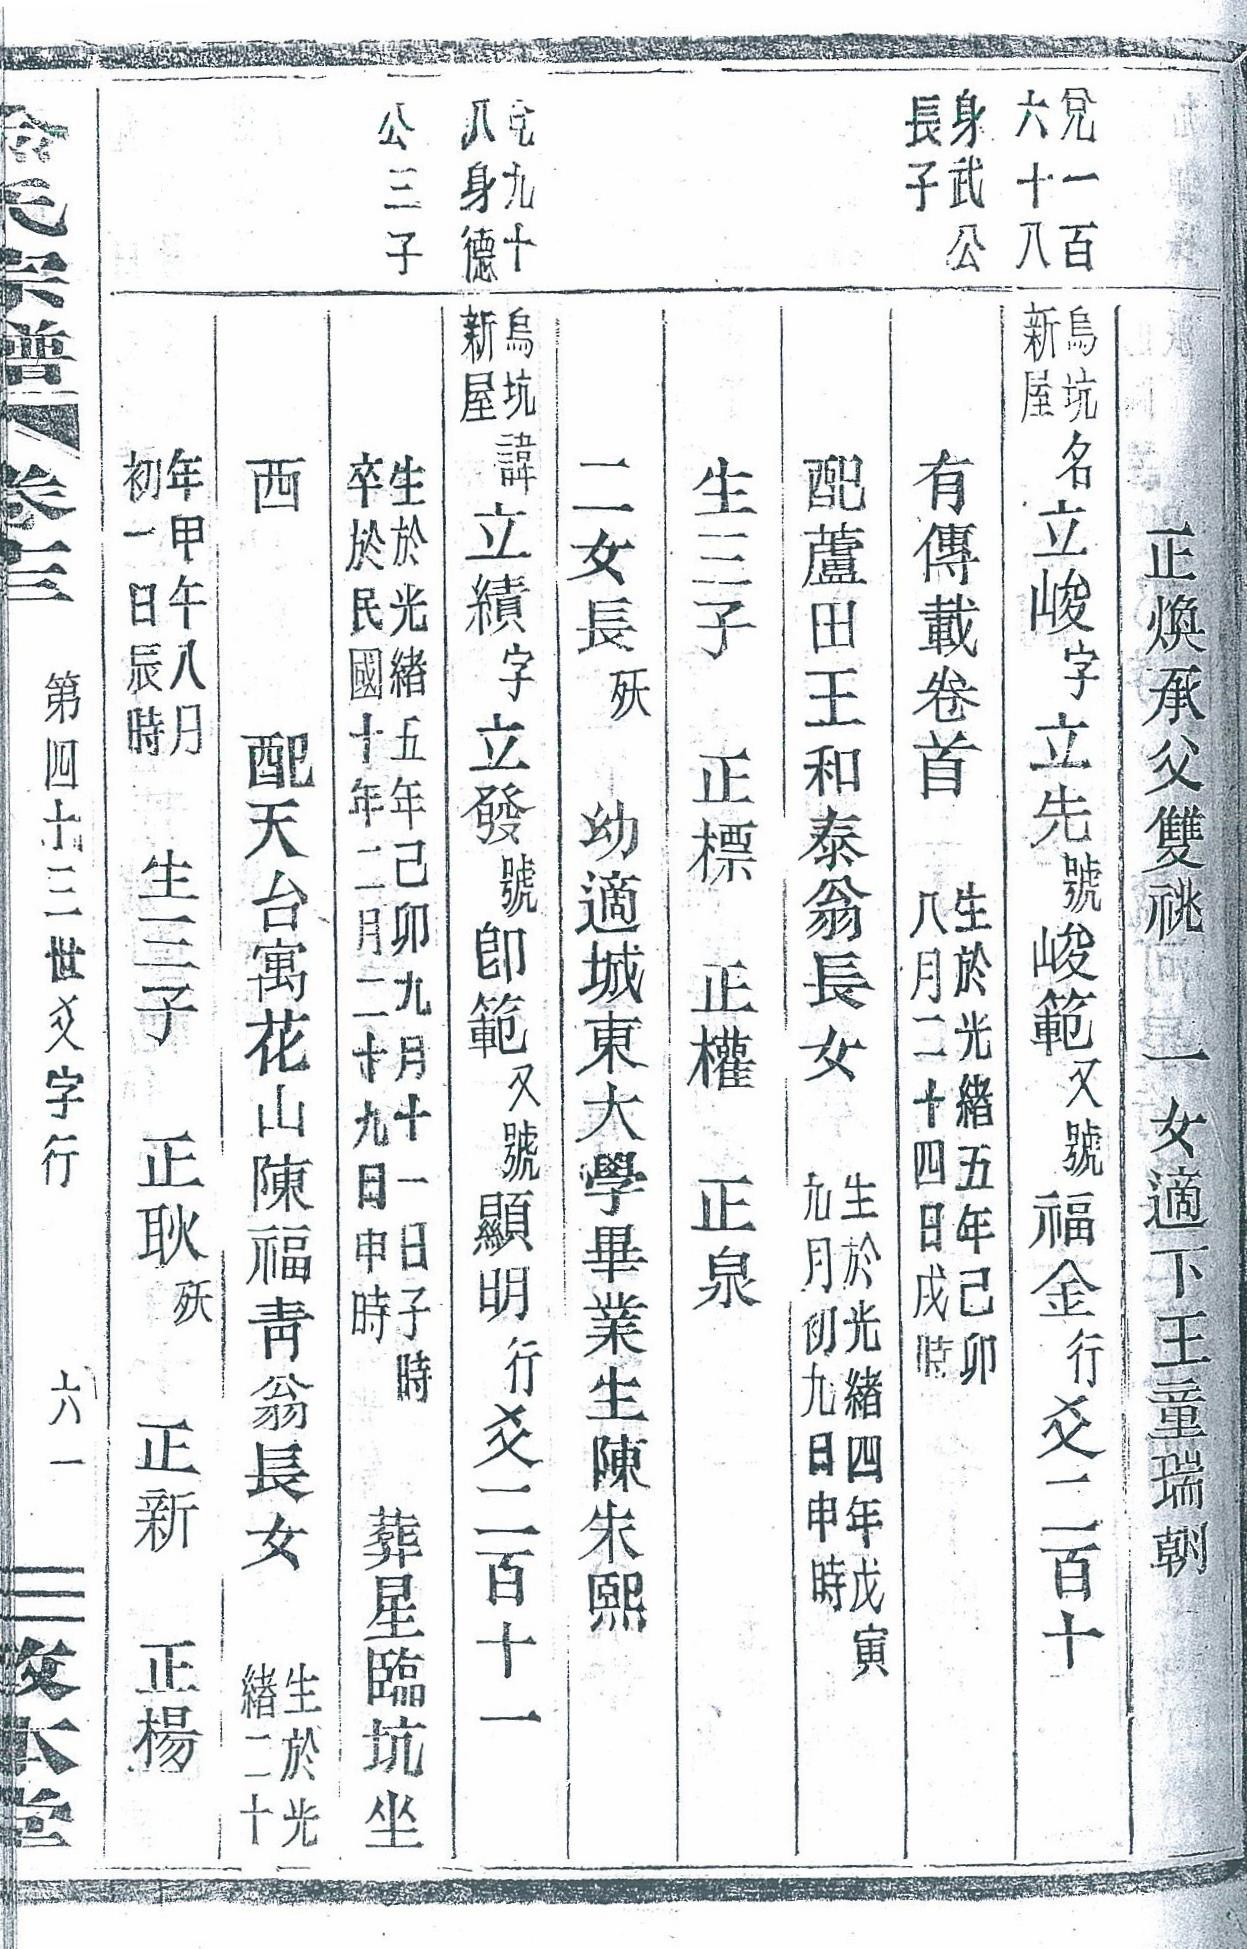 正煥承父雙祧 一女適下王童瑞朝
兌一百六十八身武公長子
烏坑新屋 名立峻字立先號峻範又號福金行爻二百十
有傳載卷首 生於光緒五年己卯八月二十四日戌時
配蘆田王和泰翁長女 生於光緒四年戊寅九月初九日申時
生三子 正標 正權 正泉
二女長殀 幼適城東大學畢業生陳朱熙
兌九十八身德公三子
烏坑新屋 諱立績字立發號卽範又號顯明行爻二百十一
生於光緒五年己卯九月十一日子時卒於民國十年二月二十九日申時 葬星臨坑坐
西 配天台寓花山陳福靑翁長女 生於光緒二十
年甲午八月初一日辰時 生三子 正耿殀 正新 正楊
氏宗譜 卷三 第四十三世爻字行 六一 本堂